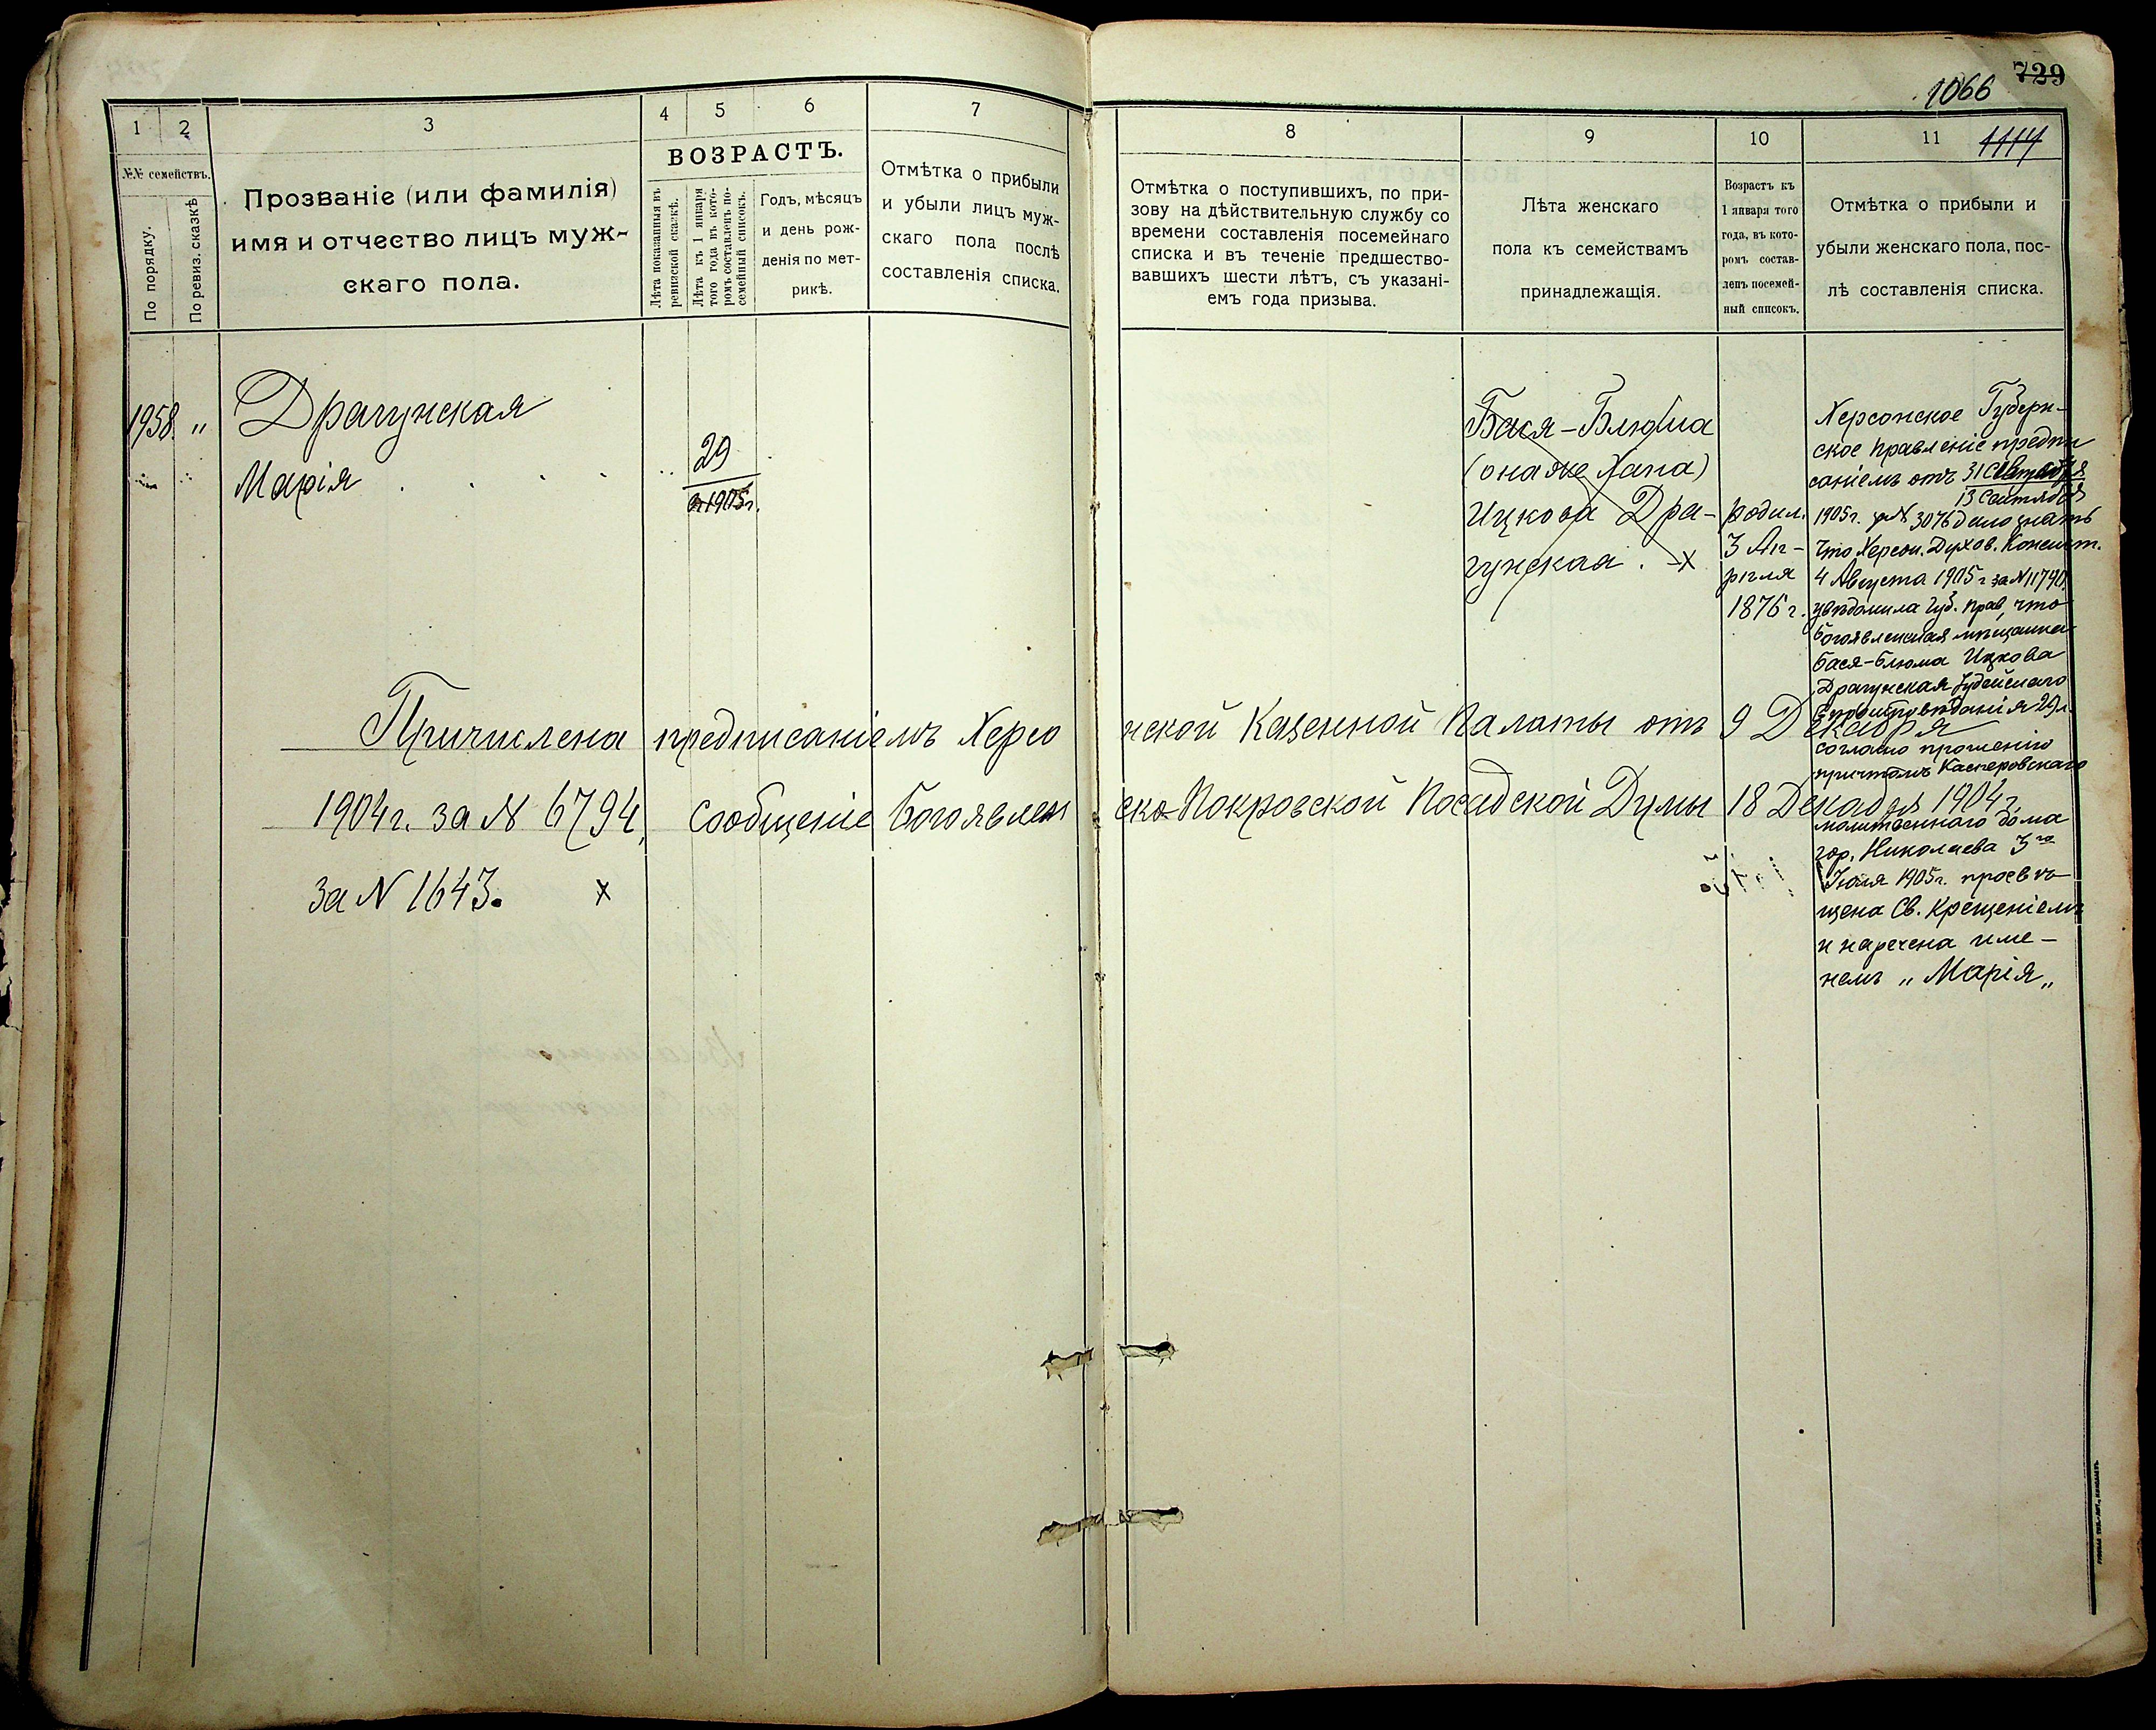 729
1066
1114
1
2
3
4
5
6
7
№№ семействъ.
По порядку.
По ревиз. сказкѣ
Прозваніе (или фамилія)
имя и отчество лицъ муж-
скаго пола.
ВОЗРАСТЪ.
Лѣта показанныя въ
ревизской сказкѣ.
Лѣта къ 1 января
того года въ кото-
ромъ составленъ по-
семейный списокъ.
Годъ, мѣсяцъ
и день рож-
денія по мет-
рикѣ.
Отмѣтка о прибыли
и убыли лицъ муж-
скаго пола послѣ
составленія списка.
8
9
10
11
Отмѣтка о поступившихъ, по при-
зову на дѣйствительную службу со
времени составленія посемейнаго
списка и въ теченіе предшество-
вавшихъ шести лѣтъ, съ указані-
емъ года призыва.
Лѣта женскаго
пола къ семействамъ
принадлежащія.
Возрастъ къ
1 января того
года, въ кото-
ромъ состав-
ленъ посемей-
ный списокъ.
Отмѣтка о прибыли и
убыли женскаго пола, пос-
лѣ составленія списка.
1958. „
Драгунская
Марія
29
1905г.
Бася-Блюма
(она же Хана)
Ицкова Дра-
гунская. х
родил.
3 Ап-
рѣля
1876 г.
Херсонское Губерн-
ское Правленіе предпи
саніемъ отъ 31
13 Сентября
1905г. № 3076 дало знать
что Херсон. Духов. Консист.
4 Августа 1905 г за №11790
увѣдомила Губ. Прав, что
Богоявленская мѣщанка
Бася-Блюма Ицкова
Драгунская Іудейскаго
вѣроисповѣданія 29 л.
согласно прошенію
причтомъ Касперовскаго
молитвеннаго дома
гор. Николаева 3го
Іюля 1905г. просвѣ
щена Св. Крещеніемъ
и наречена име-
немъ „Марія„
Причислена предписаніемъ Херсо нской Казенной Палаты отъ 9 Декабря
1904г. за № 6794, сообщеніе Богоявлен ско-Покровской Посадской Думы 18 Декабря 1904г.
за № 1643. х